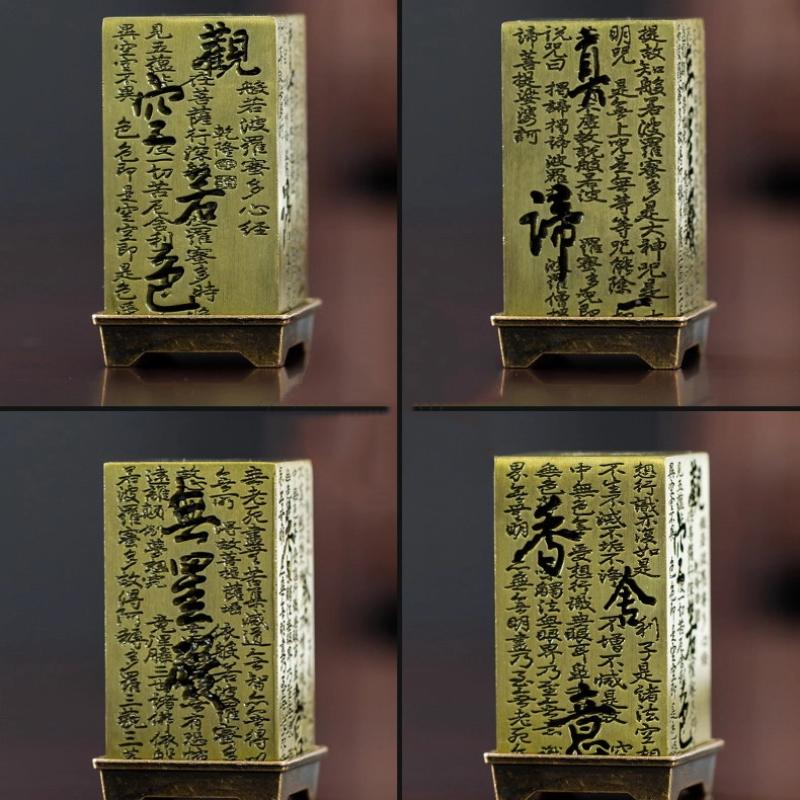 般若波羅蜜多心經
乾隆
觀
在菩薩行深般若波羅蜜多時
見五蘊 空 度一切苦厄舍利子 色
異空空不異色色即是空空即是色受
提故知般若波羅蜜多是大神咒是大
明咒是無上咒是無等等咒能除一切
真 故說般若波羅蜜多咒即
說咒曰揭諦揭諦波羅 諦 波羅僧揭
諦菩提娑婆訶
無老死盡無苦集滅道無智亦無得以
無所得故菩提薩埵依般若波羅蜜多
故 無罣礙 無有恐怖
遠離顛倒夢想究竟涅槃三世諸佛依般
若波羅蜜多故得阿耨多羅三藐三菩
想行識亦復如是舍利子是諸法空相
不生不滅不垢不淨不增不減是故空
中無色無受想行識無眼耳鼻 意
無色 香 觸法無眼界乃至無意識
界無無明亦無無明盡乃至無老死亦